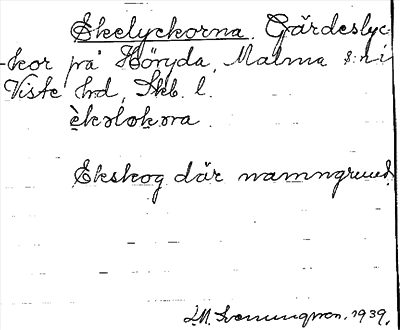 Ekelyckorna. Gärdeslyc-
-kor på Höryda, Malma s:n i
Viste hd, Skb. l.
èkəlok̥ɒra.
Ekskog där namngrund.
D.M. Svenningson. 1939.